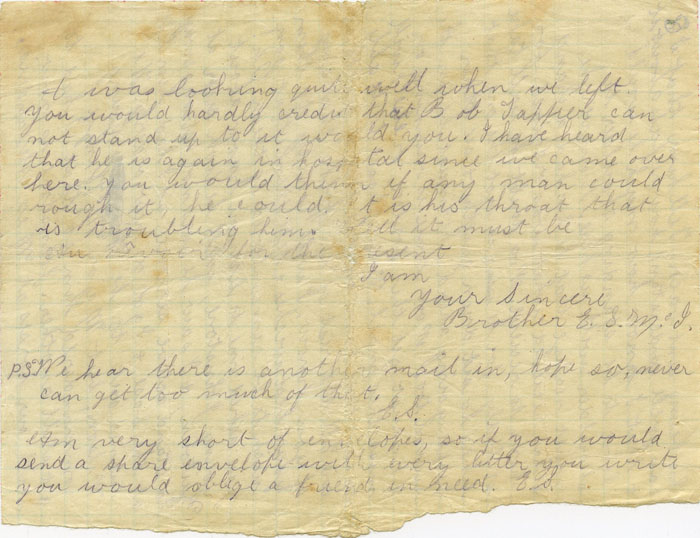 I was looking quite well when we left.
You would hardly credit that Bob Tapper can
not stand up to it would you. I have heard
that he is again in hospital since we came over
here. You would think if any man could
rough it, he could. It is his throat that
is troubling him. must be
for the present
I am
Your Sincere
Brother E. S. McI.
P.S. We hear there is another mail in, hope so, never
can get too much of that.
E.S.
Am very short of envelopes, so if you would
send a share envelope with every letter you write
you would oblige a friend in need. E.S.